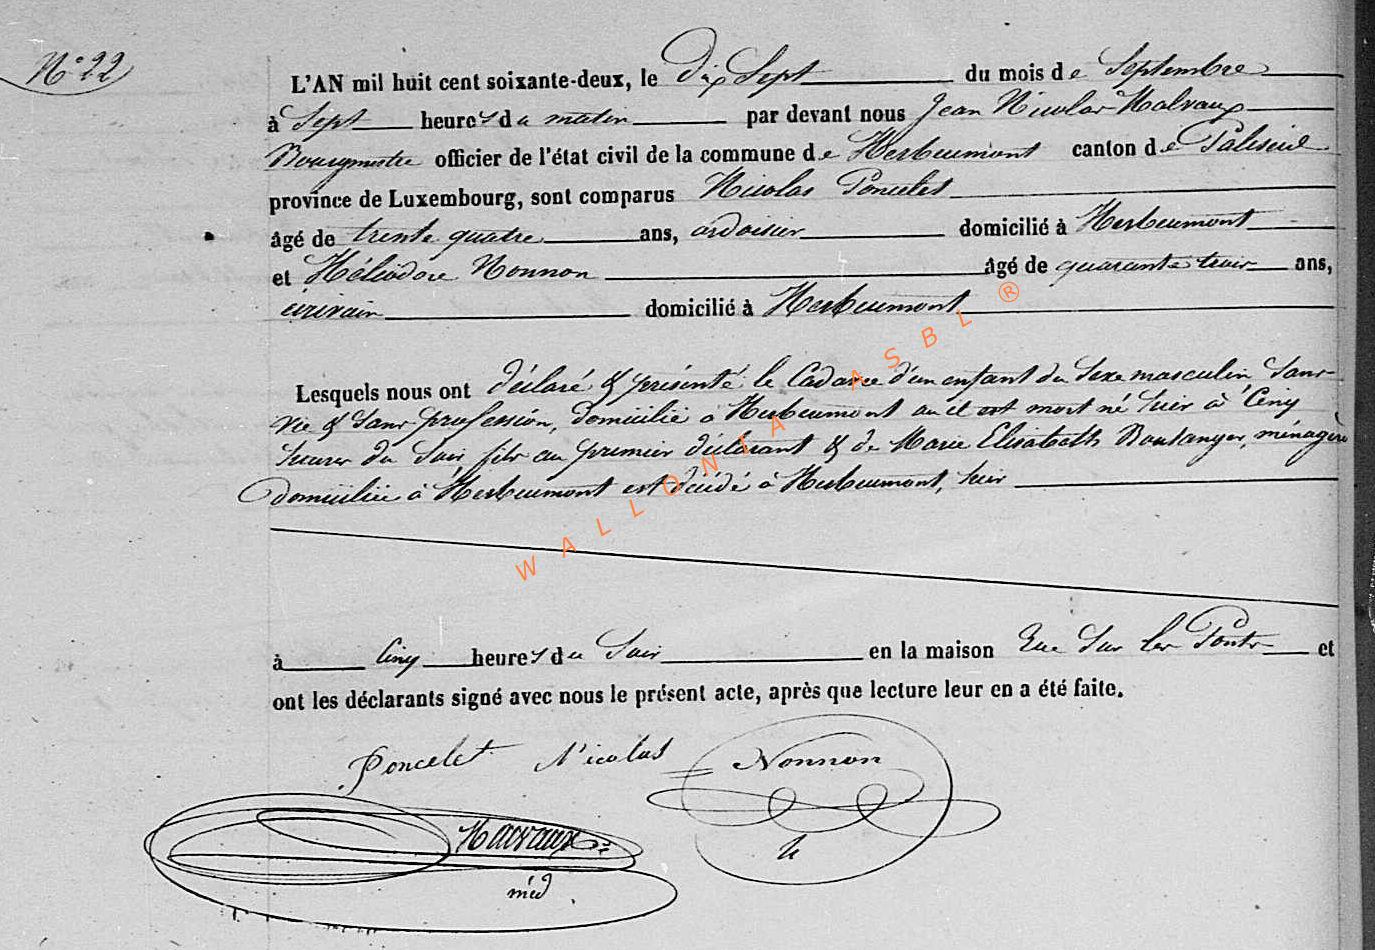 N° 22
L'AN mil huit cent soixante-deux, le Dix Sept du mois de Septembre
à Sept heures du matin par devant nous Jean Nicolas Halvaux
Bourgmestre officier de l'état civil de la commune de Herbeumont canton de Paliseul
province de Luxembourg, sont comparus Nicolas Poncelet
âgé de trente quatre ans, ardoisier domicilié à Herbeumont
et Héliodore Nonnon âgé de quarante trois ans,
écrivain domicilié à Herbeumont
Lesquels nous ont déclaré & présenté le Cadavre d'un enfant du Sexe masculin Sans
vie & Sans profession, domicilié à Herbeumont où il est mort né hier à Cinq
heures du Soir fils au premier déclarant & de Marie Elisabeth Boulanger, ménagère
domiciliée à Herbeumont est décédé à Herbeumont, hier
à Cinq heures du Soir en la maison Rue Sur les Ponts et
ont les déclarants signé avec nous le présent acte, après que lecture leur en a été faite.
Poncelet Nicolas Nonnon
Halvaux
méd
WALLONIA ASBL ®